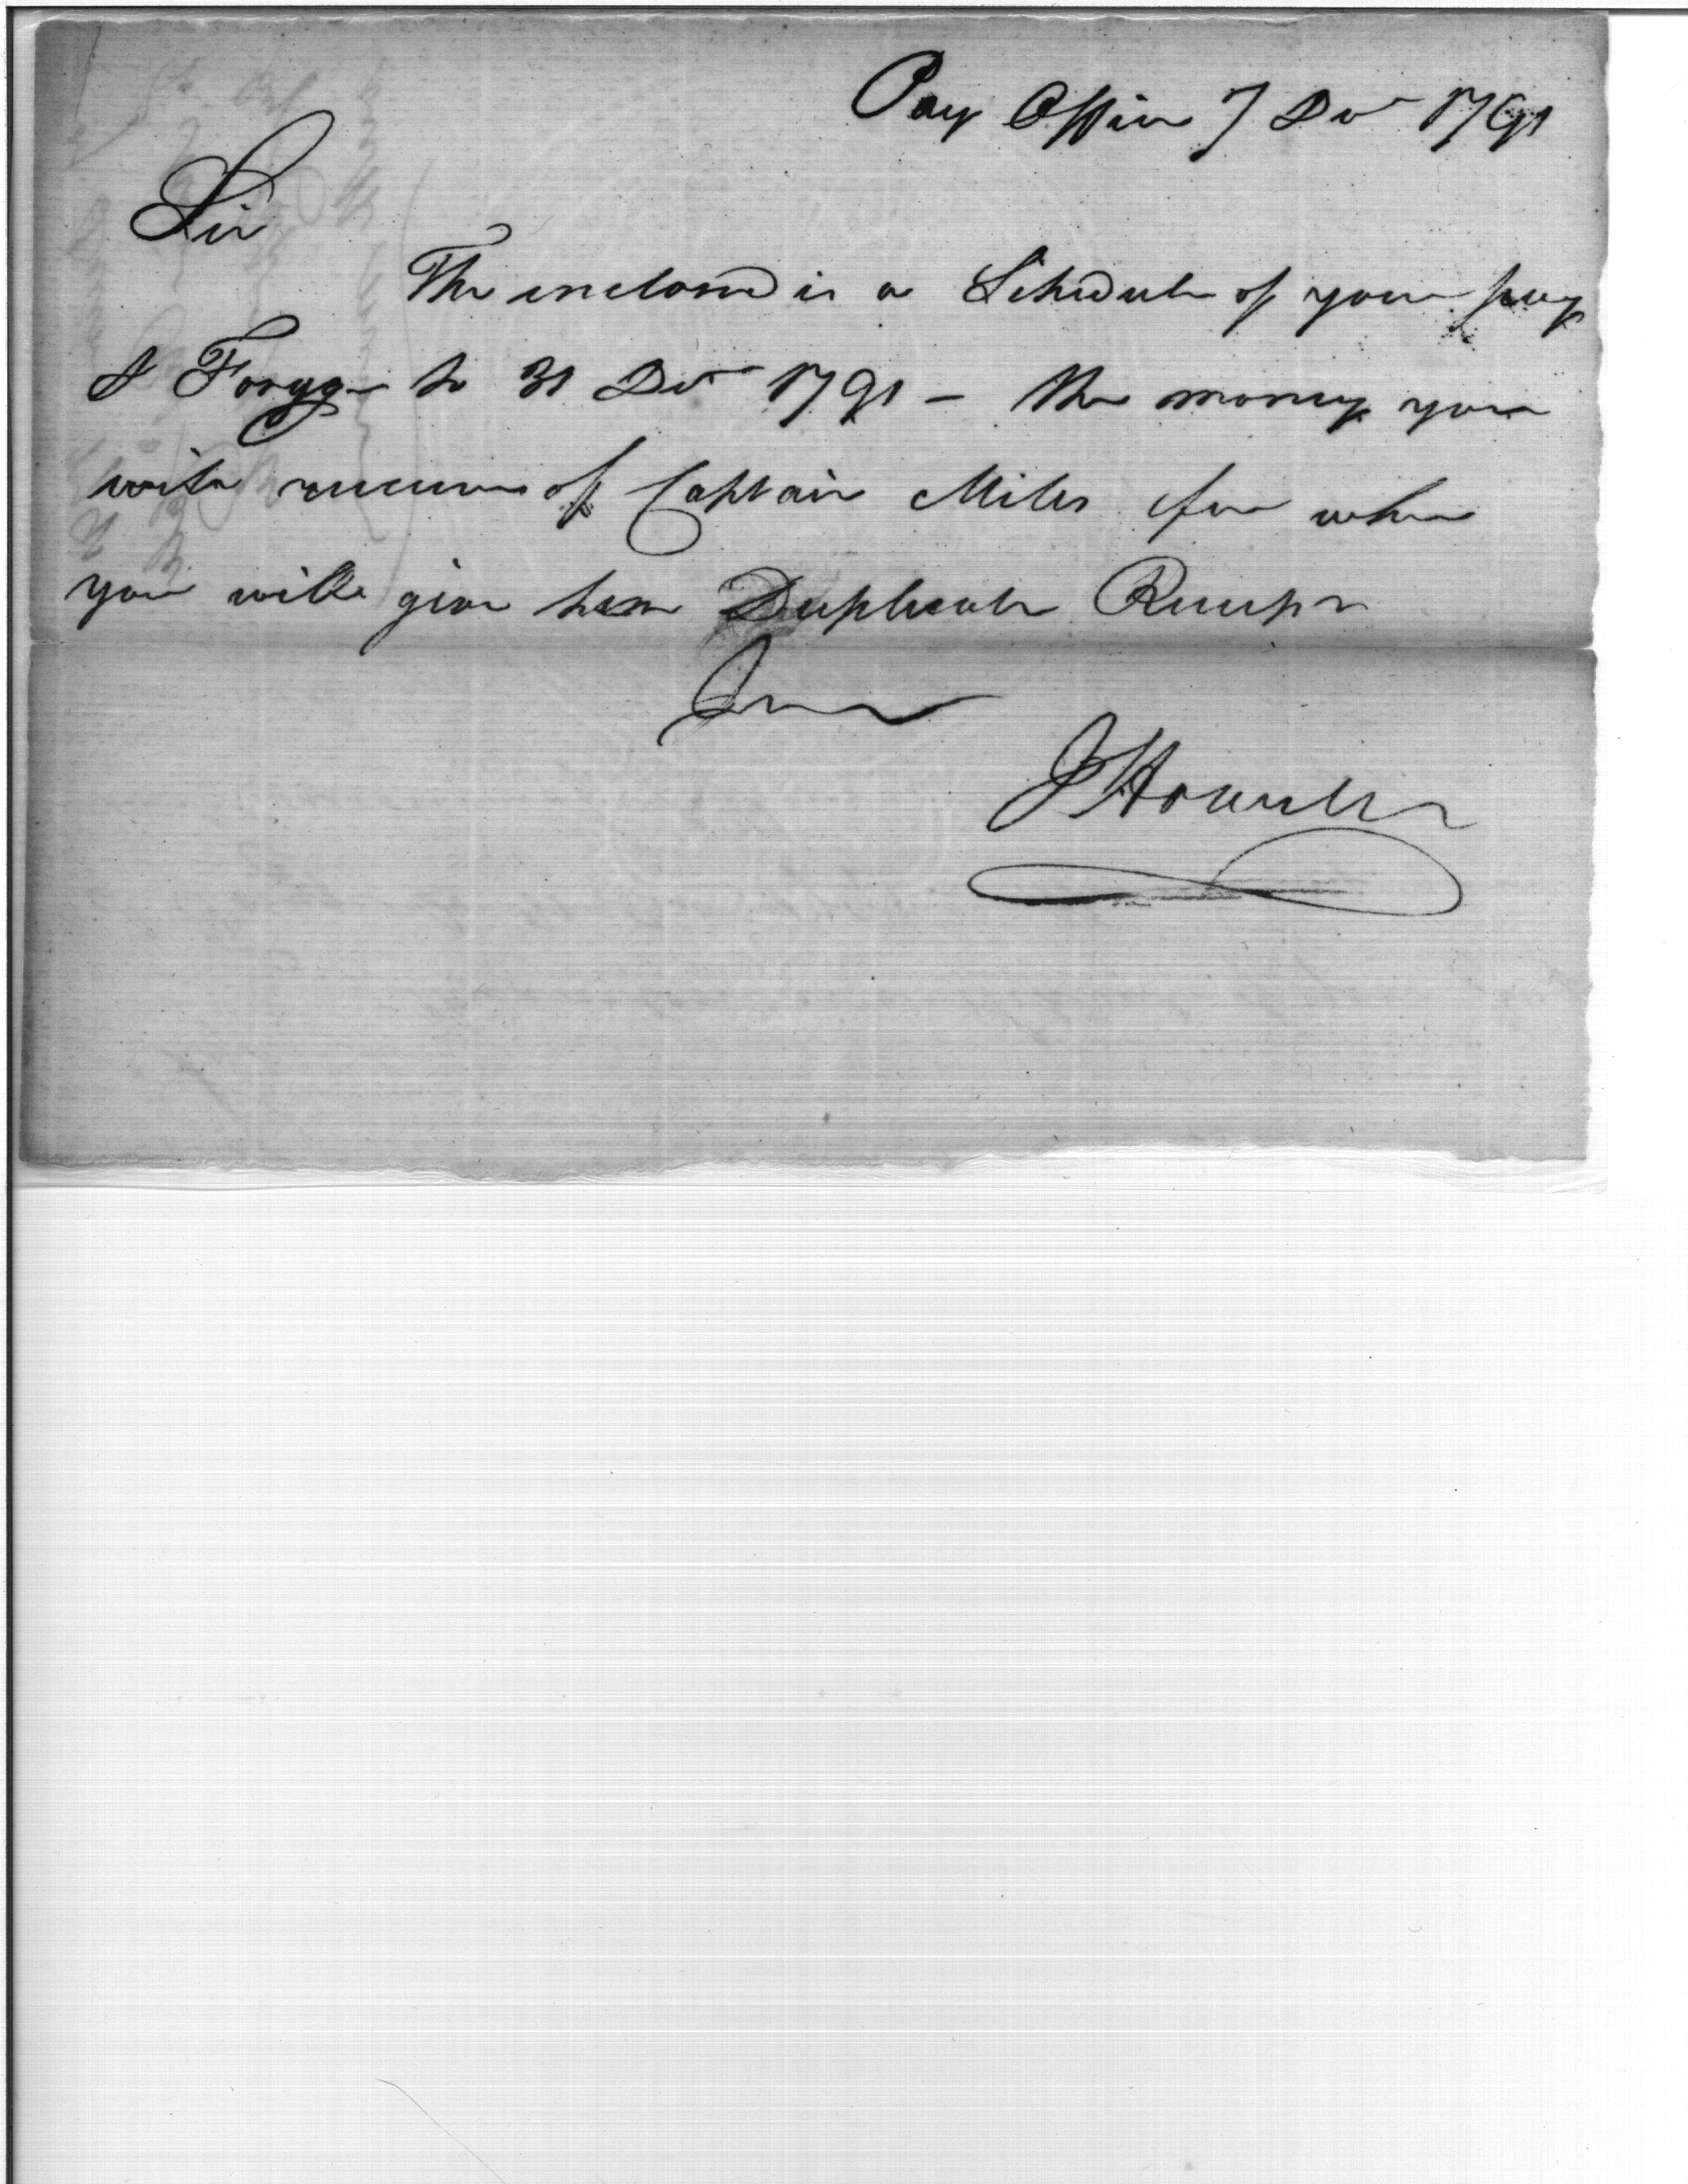 Pay Office 7 Dec 1791
Sir
The enclosed is a Schedule of your pay
& Forage to 31 Dec 1791 - the money you
will receive of Captain Mills for whom
you will give him Duplicate Receipts
J Howell